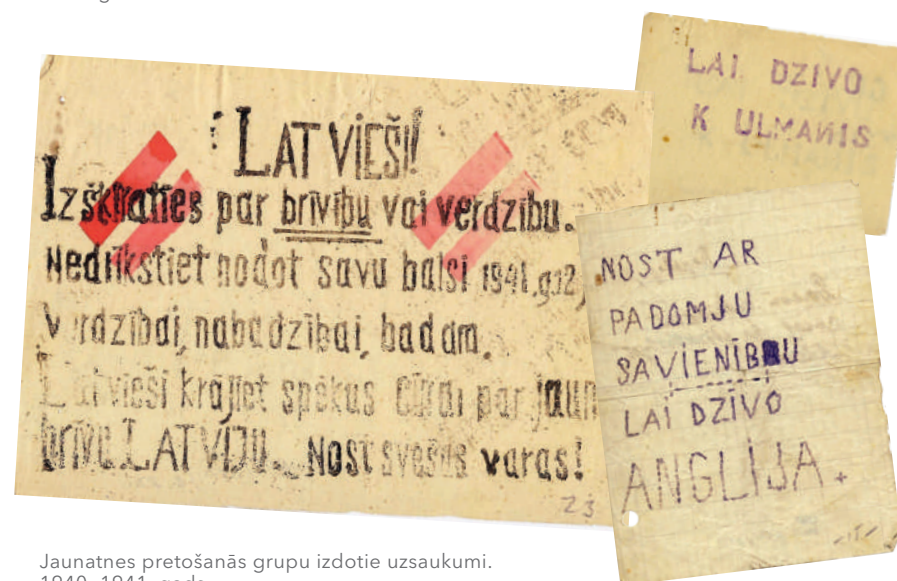 LATVIEŠI!
Izšķiraties par brīvību vai verdzību.
Nedrīkstiet nodot savu balsi 1941.g.12
verdzībai, nabadzībai, badam.
Latvieši krājiet spēkus cīņai par jaun
brīvu LATVIJU. Nost svešās varas!
23
LAI DZIVO
K ULMANIS
NOST AR
PADOMJU
SAVIENĪBU
LAI DZĪVO
ANGLIJA.
Jaunatnes pretošanās grupu izdotie uzsaukumi.